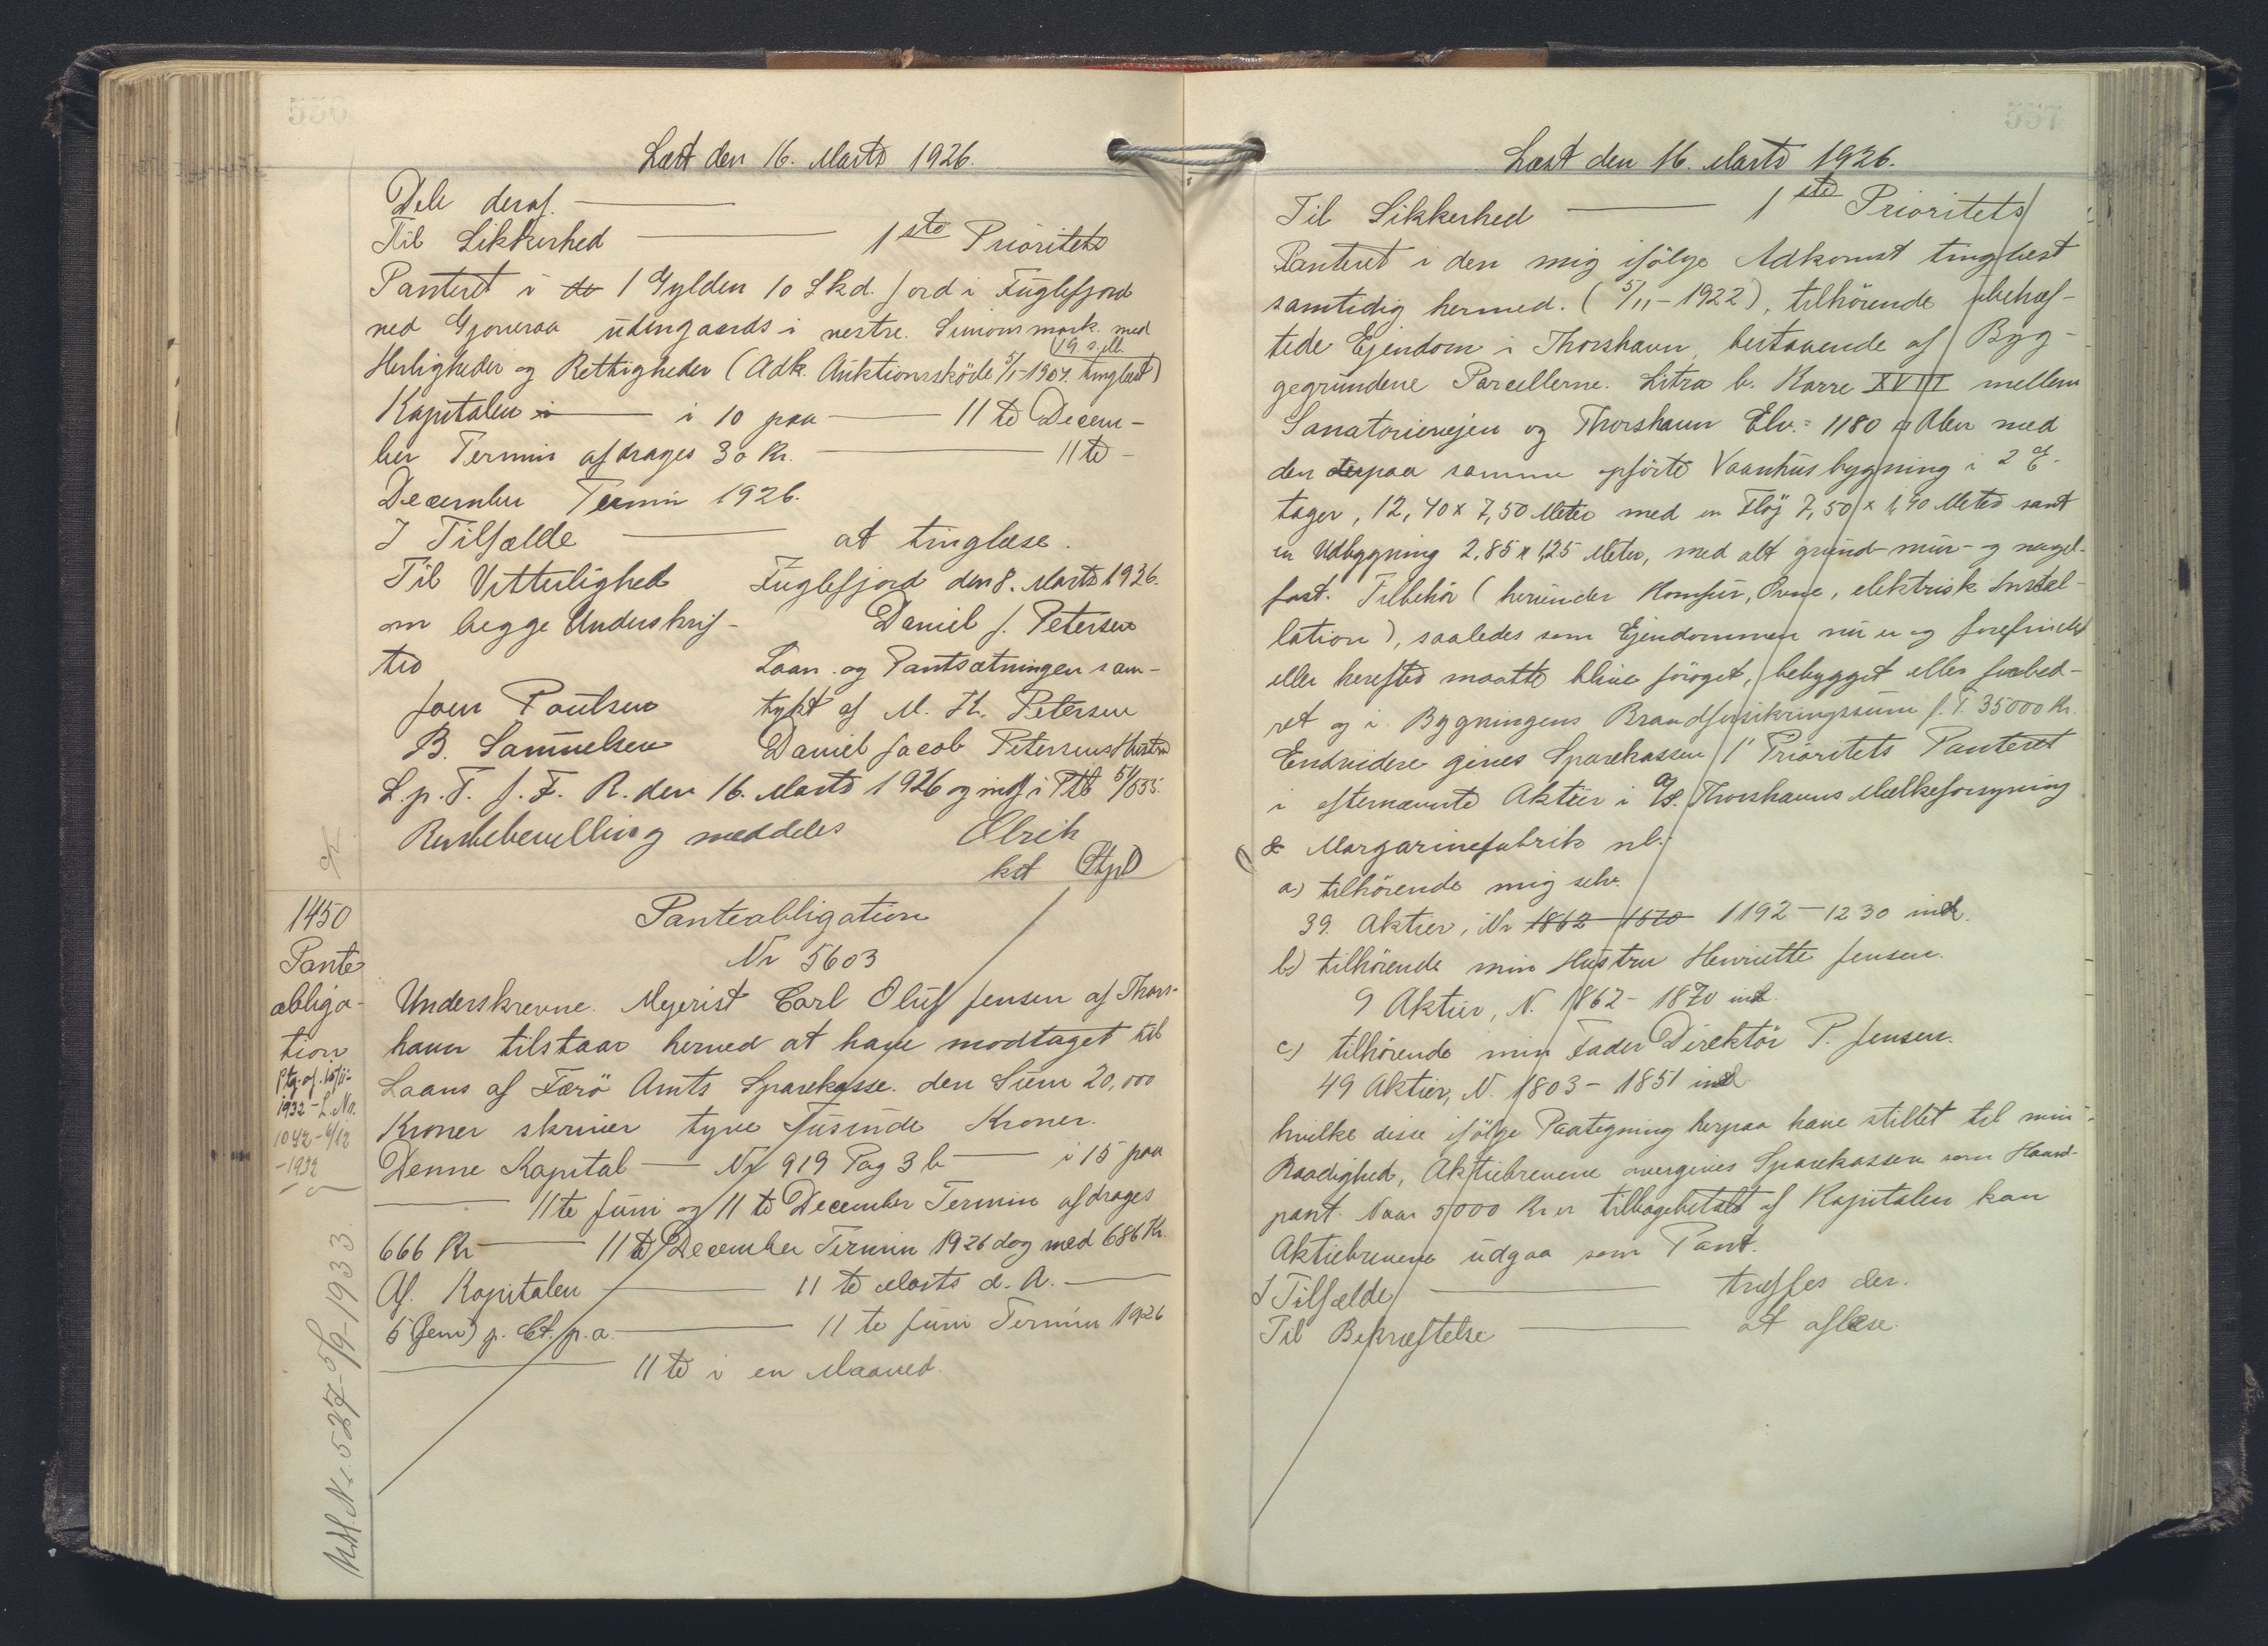 Læst den 16. Marts 1926.
Dele deraf. —
Til Sikkerhed — 1ste Prioritets
Panteret i de 1 Gylden 10 Skd. Jord i Fuglefjord
ved Gjoveraa udengaards i vestre. Simons mark. med
Herligheder og Rettigheder (Adk. Auktionsskøde 5/1-1907. tinglæst 19 s. M.)
Kapitalen i — i 10 paa — 11te Decem-
ber Termin afdrages 30 Kr. — 11te -
December Termin 1926.
I Tilfælde — at tinglæse.
Til Vitterlighed Fuglefjord den 8. Marts 1926.
om begge Underskrif- Daniel J. Petersen
ter Laan. og Pantsætningen sam-
Joen Poulsen tykt af M. K. Petersen
B. Samuelsen Daniel Jacob Petersens Hustru
L. p. T. f. F. R. den 16. Marts 1926 og indf i PTB 51/555.
Rentebevilling meddeles Elrik
kst
1450
Pante
obliga-
tion
Ptg. af. 16/11-
1932 - L. Nr.
1042 - 6/12
-1932
Udl. Nr. 527 - 5/9-1933
Panteobligation
Nr 5603
Underskrevne. Mejerist Carl Oluf Jensen af Thors-
havn tilstaar herved at have modtaget til
Laans af Færø Amts Sparekasse. den Sum 20,000
Kroner skriver tyve Tusinde Kroner.
Denne Kapital — Nr 919 Pag 3 b — i 15 paa
— 11te Juni og 11te December Termin afdrages
666 Kr — 11te December Termin 1926 dog med 686 Kr.
Af. Kapitalen — 11te Marts d. A. —
5 (fem) p. Ct. p. a. — 11te Juni Termin 1926
— 11te i en Maaned.
Læst den 16. Marts 1926.
Til Sikkerhed — 1ste Prioritets
Panteret i den mig ifølge Adkomst tinglæst
samtidig hermed. (5/11-1922), tilhørende ubehæf-
tede Ejendom i Thorshavn, bestaaende af Byg-
gegrundene Parcellerne. Litra b. Karre XVIII mellem
Sanatorievejen og Thorshavn Elv. = 1180 □ Alen med
den derpaa samme opførte Vaanhusbygning i 2 E-
tager, 12,40 x 7,50 Meter med en Fløj 7,50 x 1,90 Meter samt
en Udbygning 2,85 x 1,25 Meter, med alt grund- mur- og nagel-
fast. Tilbehør (herunder Komfur, Ovne, elektrisk Instal-
lation), saaledes som Ejendommen nu er og forefindes
eller herefter maatte blive forøget, bebygget eller forbed-
ret og i Bygningens Brandforsikringssum f. T. 35000 Kr.
Endvidere gives Sparekassen 1' Prioritets Panteret
i efternævnte Aktier i A/S. Thorshavns Mælkeforsyning
& Margarinefabrik nl.
a) tilhørende mig selv.
39. Aktier, Nr 1862 - 1870 1192 - 1230 incl.
b) tilhørende min Hustru Henriette Jensen.
9 Aktier, N. 1862 - 1870 incl.
c) tilhørende min Fader Direktør P. Jensen.
49 Aktier, N. 1803 - 1851 incl.
hvilke disse ifølge Paategning herpaa have stillet til min
Raadighed, Aktiebrevene overgives Sparekassen som Haand-
pant. Naar 5000 Kr er tilbagebetalt af Kapitalen kan
Aktiebrevene udgaa som Pant.
I Tilfælde — træffes der.
Til Bekræftelse — at aflæse.